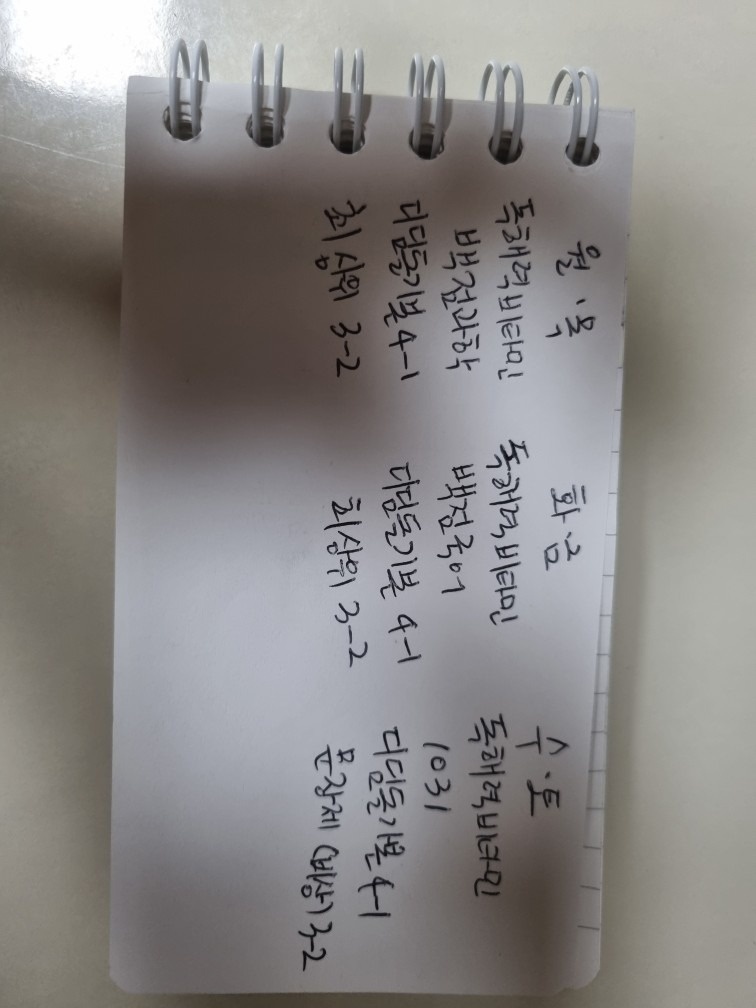 월·목
독해력비타민
백점과학
디딤돌기본4-1
최상위 3-2
화금
독해력비타민
백점국어
디딤돌기본 4-1
최상위 3-2
수·토
독해력비타민
1031
디딤돌기본4-1
문장제 (비상) 3-2